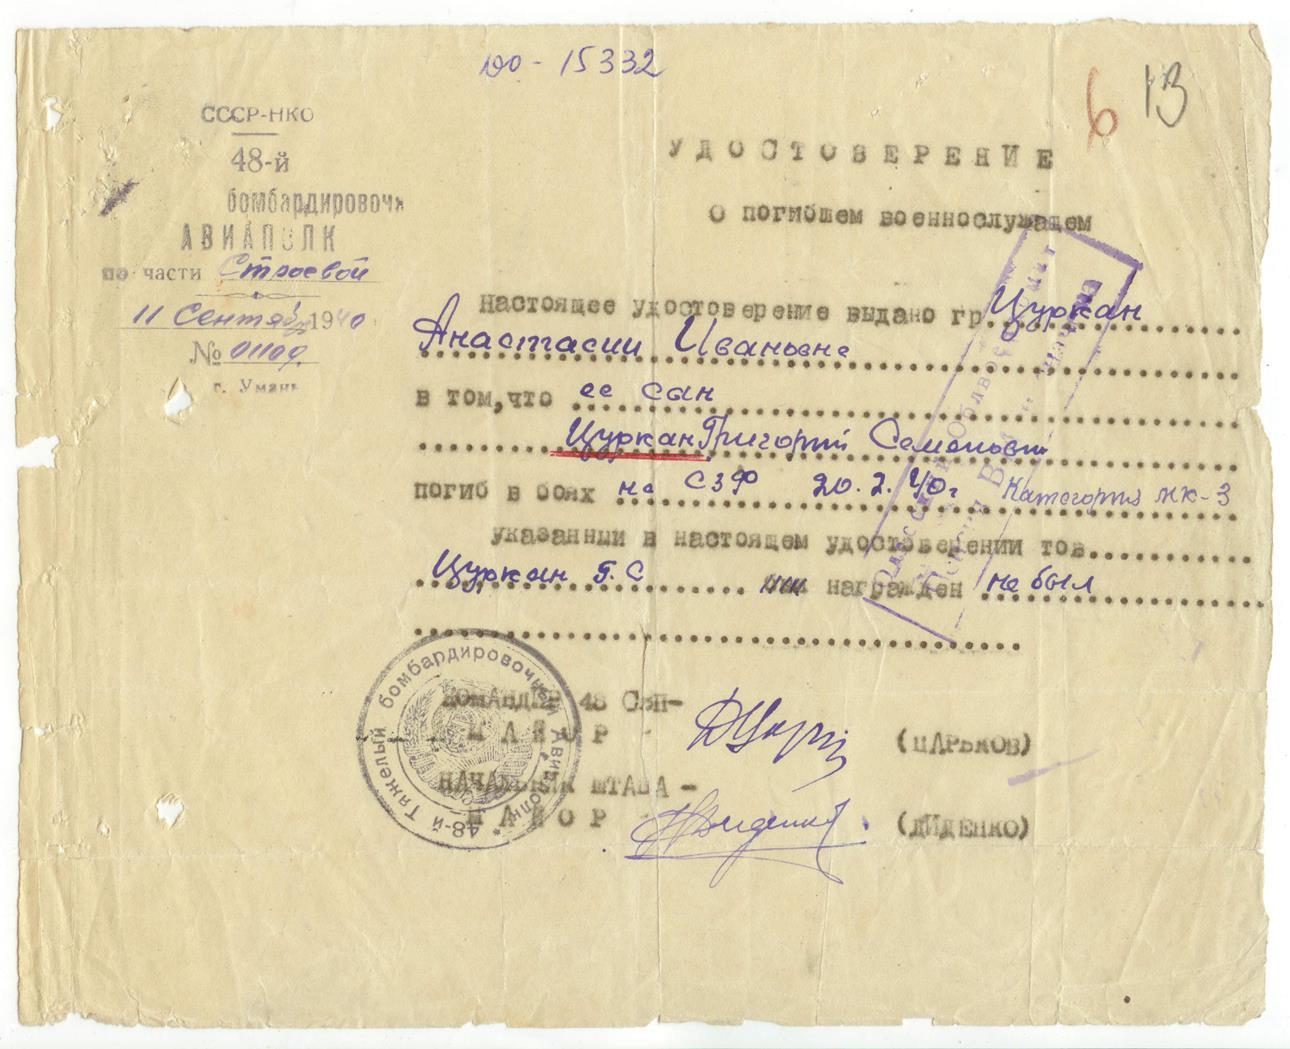 до - 15332
6 13
СССР-НКО
48-й
бомбардировочн
АВИАПОЛК
по части Строевой
11 Сентяб 1940
№ 01109
г. Умань
УДОСТОВЕРЕНИЕ
О погибшем военнослужащем
Настоящее удостоверение выдано гр. Цуркан
Анастасии Ивановне
в том, что ее сын
Цуркан Григорий Семенович
погиб в боях на СЗФ 20.2.40г Категория мк-3
указанный в настоящем удостоверении тов.
Цуркан Г.С награжден не был
КОМАНДИР 48 СБП-
МАЙОР (ЦАРЬКОВ)
НАЧАЛЬНИК ШТАБА -
МАЙОР (ДИДЕНКО)
48-й Тяжелый бомбардировочный Авиаполк